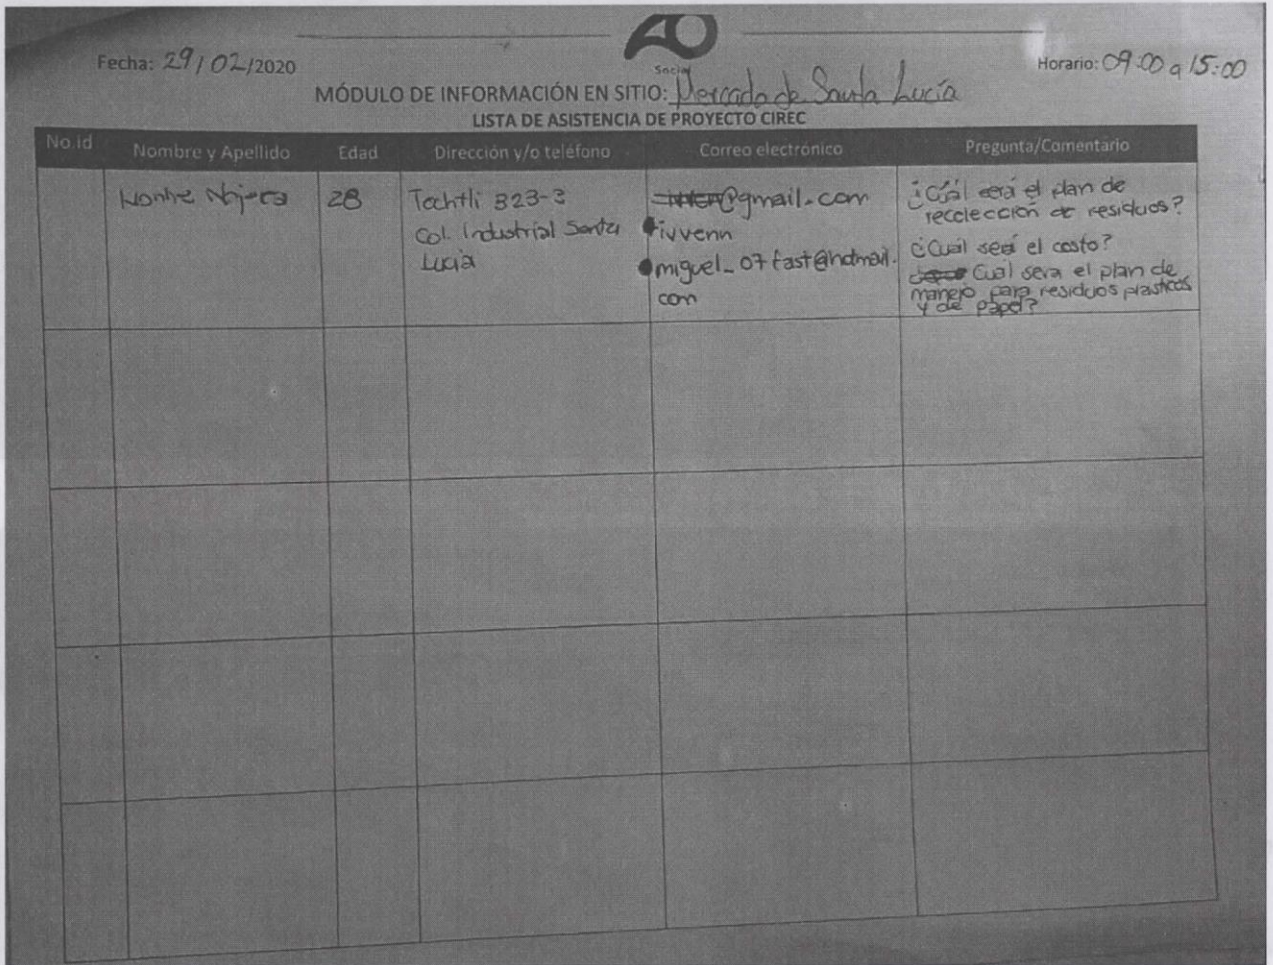 Fecha: 29/02/2020
Social
Horario: 09:00 a 15:00
MÓDULO DE INFORMACIÓN EN SITIO: Mercado de Santa Lucía
LISTA DE ASISTENCIA DE PROYECTO CIREC
No.id Nombre y Apellido Edad Dirección y/o teléfono Correo electrónico Pregunta/Comentario
28
Col. Industrial Santa
Lucia
@gmail.com
ivvenn
miguel_07fast@hotmail.
com
¿Cuál será el plan de
recolección de residuos?
¿Cuál será el costo?
Cual sera el plan de
manejo para residuos plasticos
y de papel?